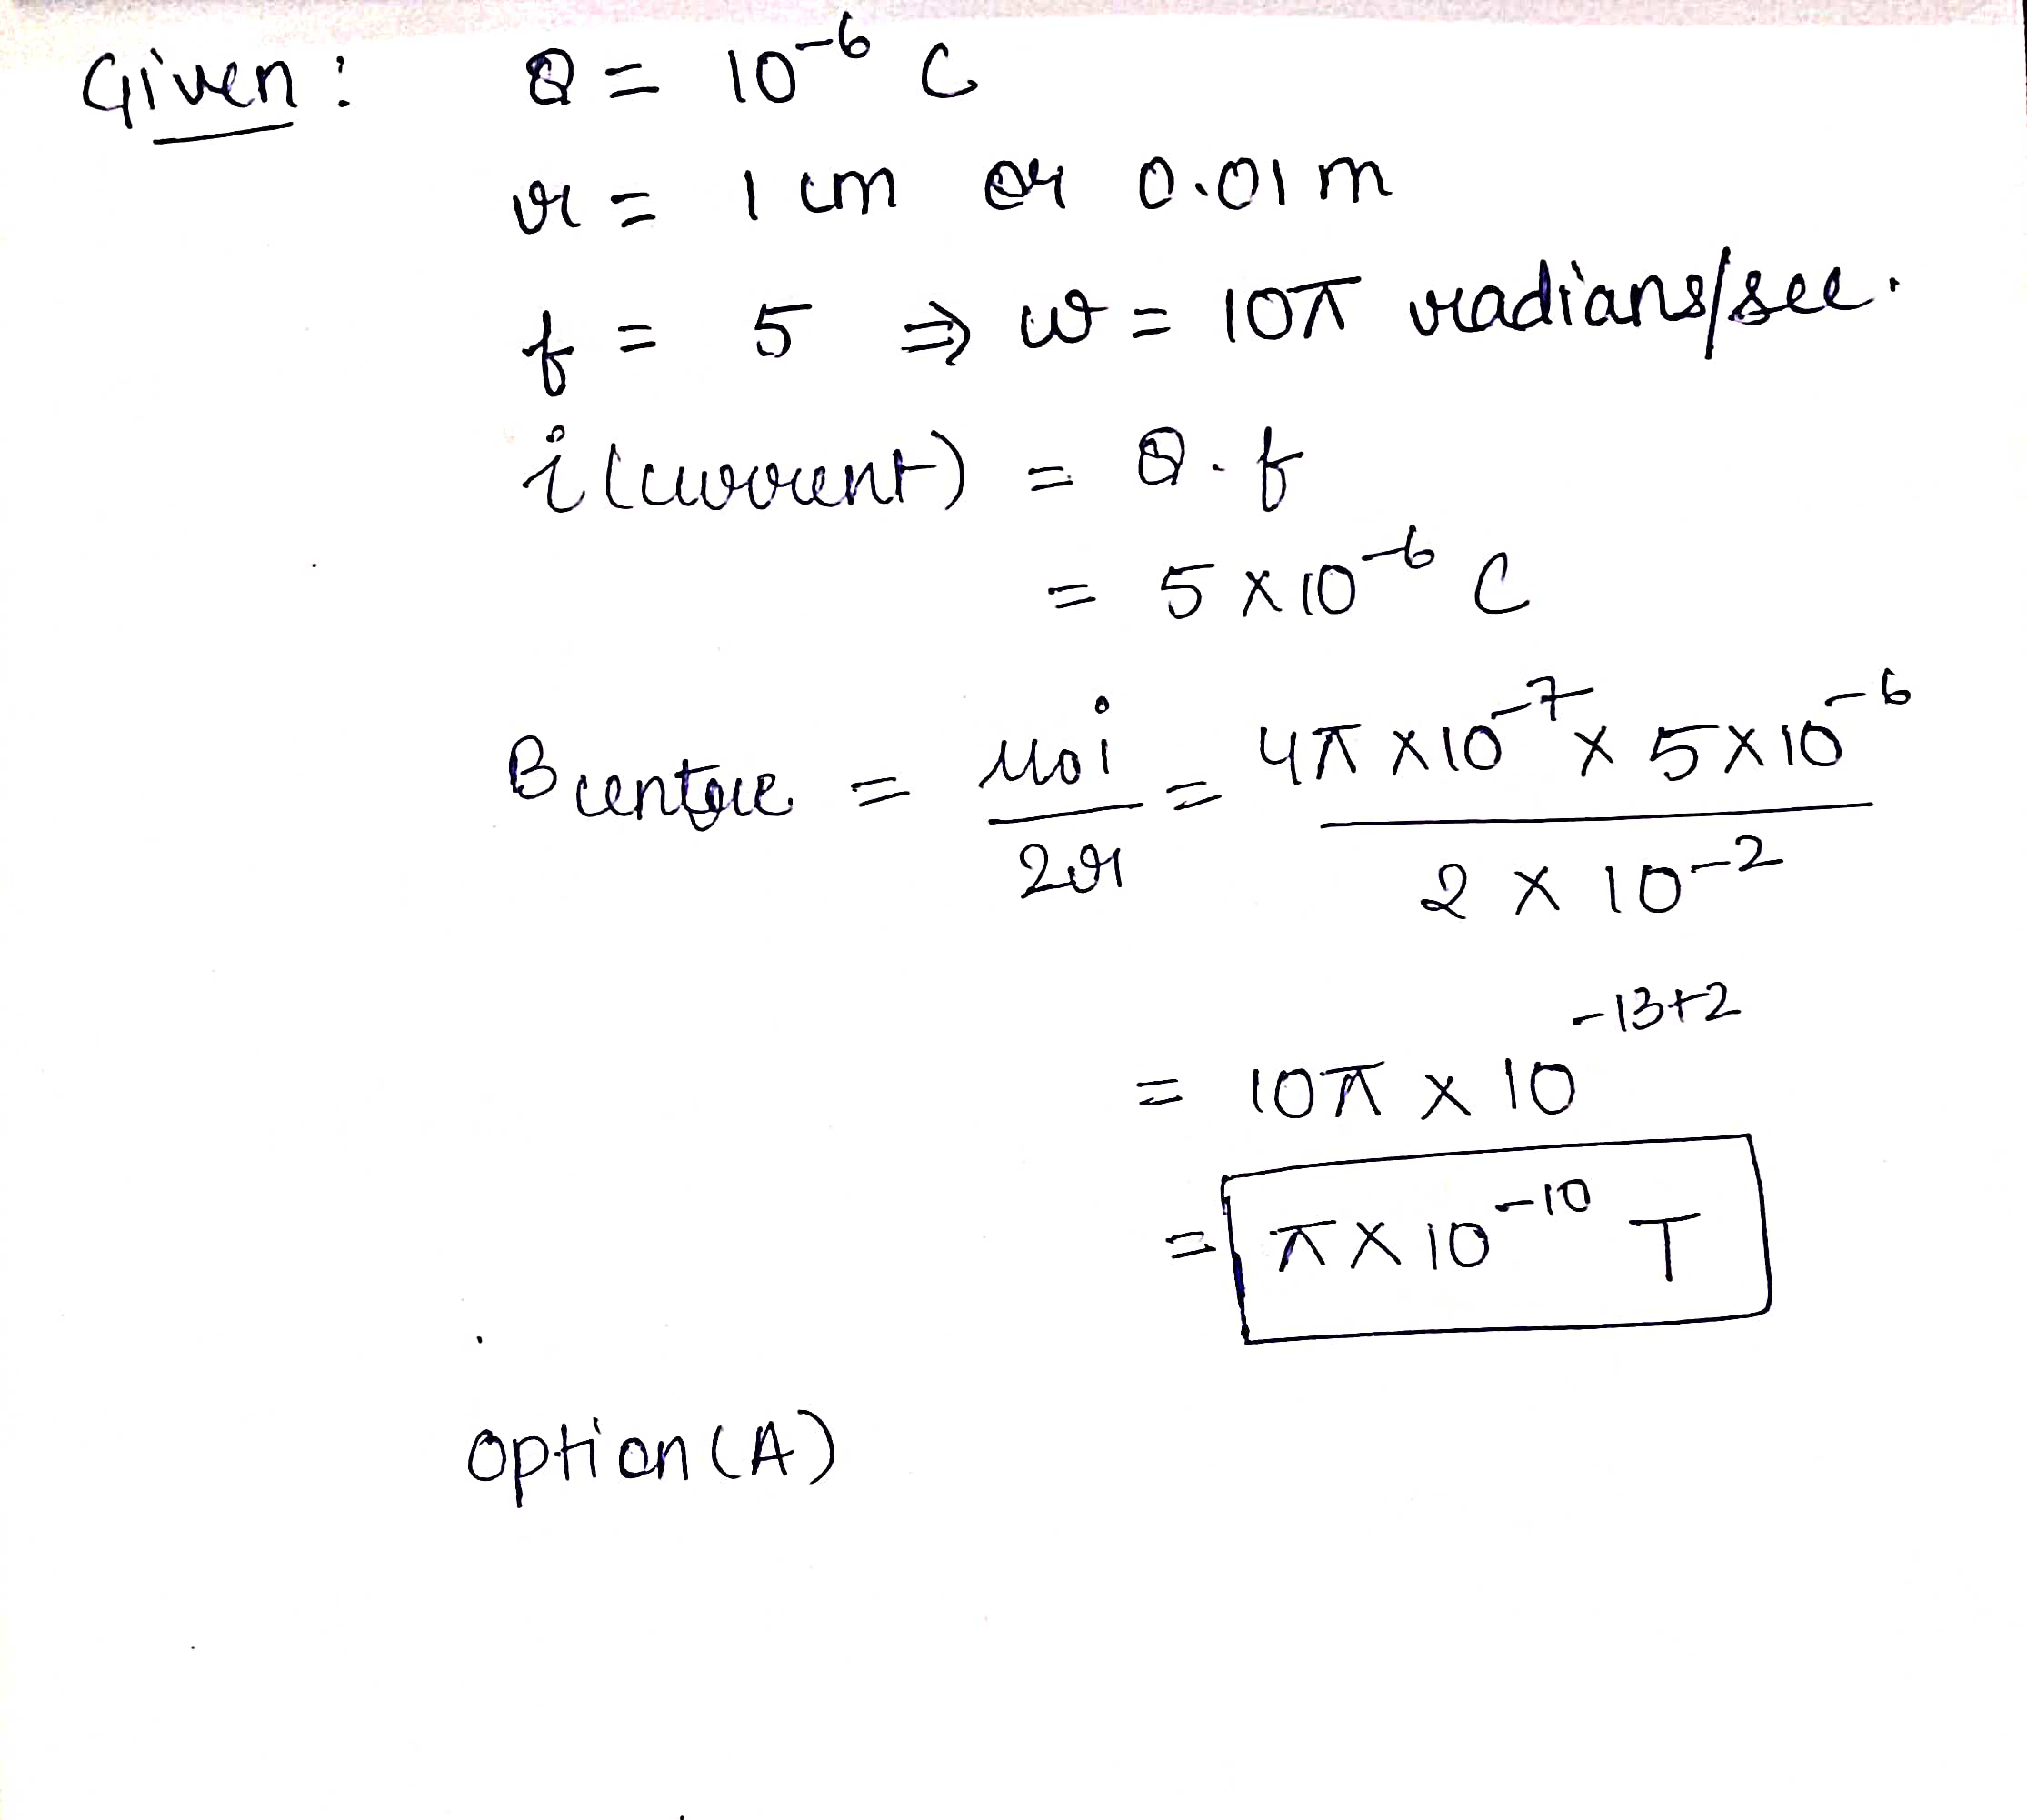 Given : Q = 10⁻⁶ C
r = 1 cm or 0.01 m
f = 5 ⇒ ω = 10π radians/sec.
i (current) = Q.f
= 5 × 10⁻⁶ C
B centre = μ₀i / 2r = 4π × 10⁻⁷ × 5 × 10⁻⁶ / 2 × 10⁻²
= 10π × 10⁻¹³⁺²
= π × 10⁻¹⁰ T
option (A)